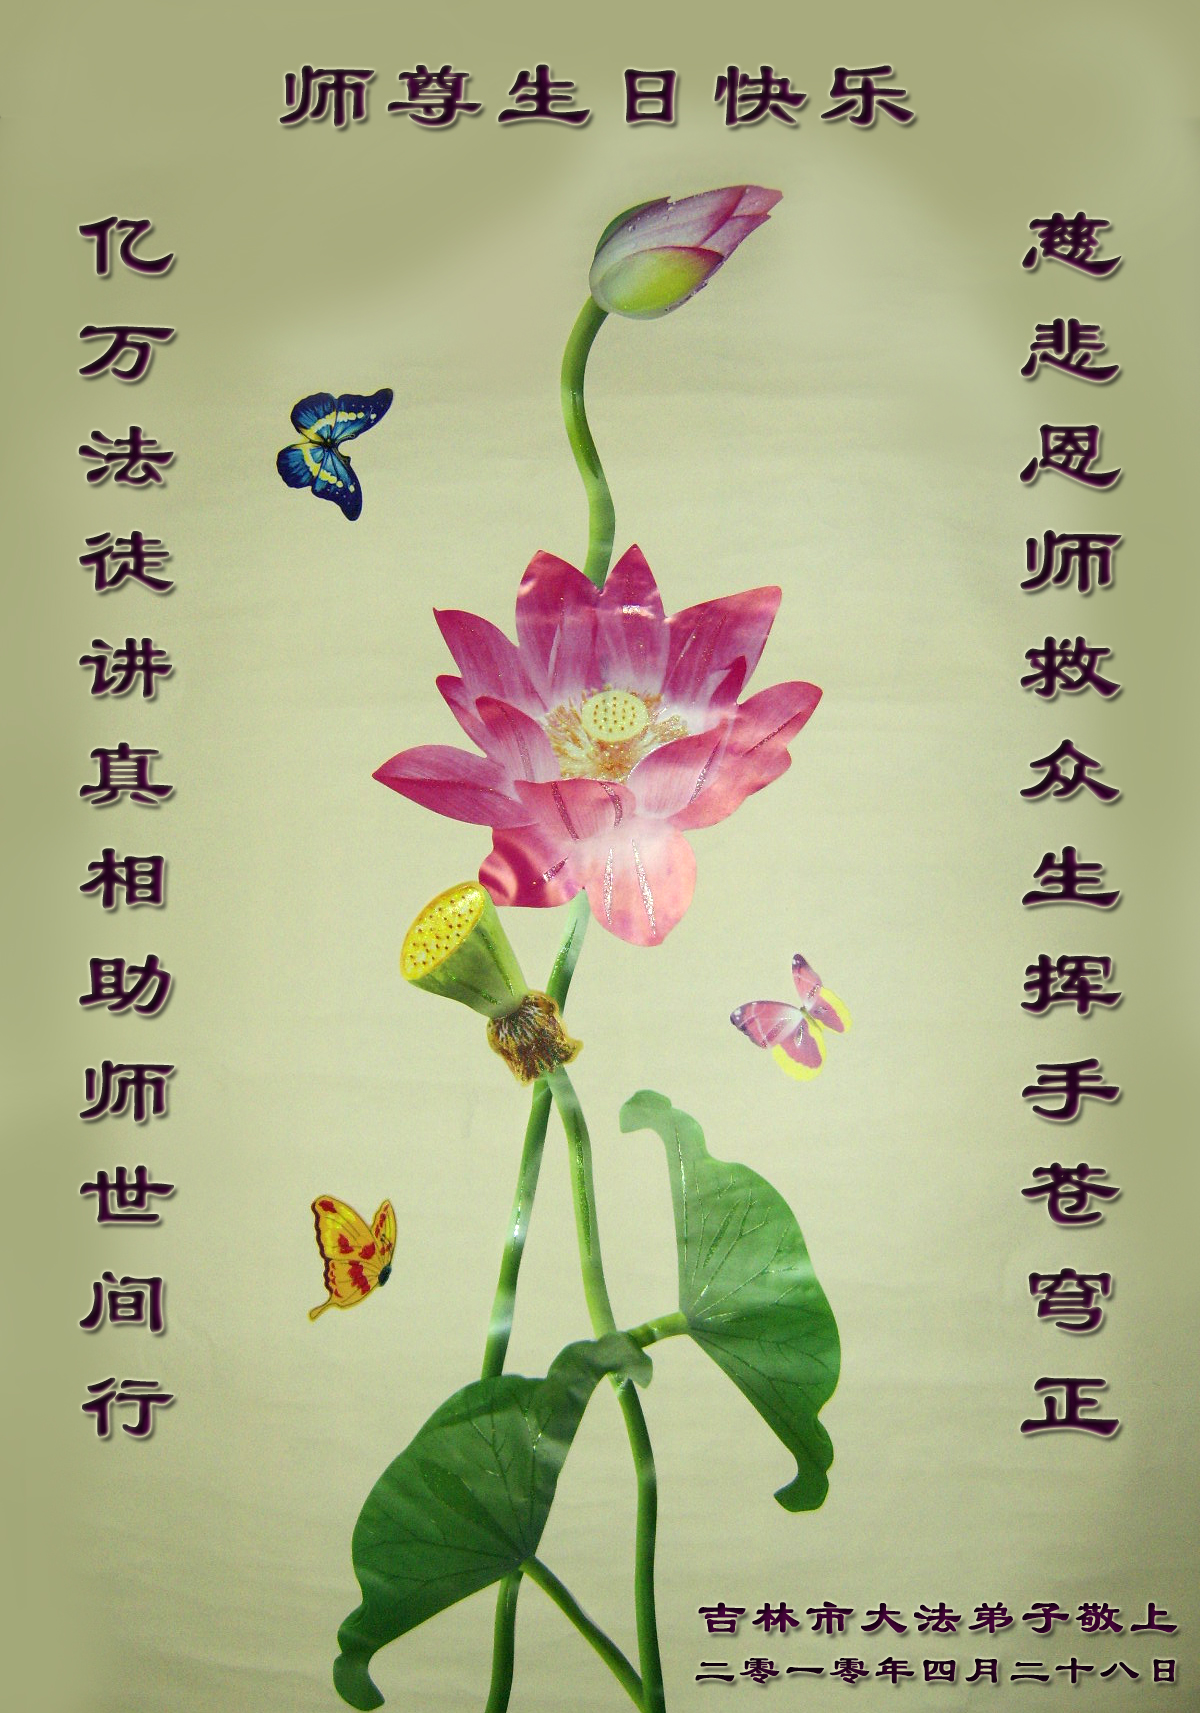 师尊生日快乐
慈悲恩师救众生挥手苍穹正
亿万法徒讲真相助师世间行
吉林市大法弟子敬上
二零一零年四月二十八日